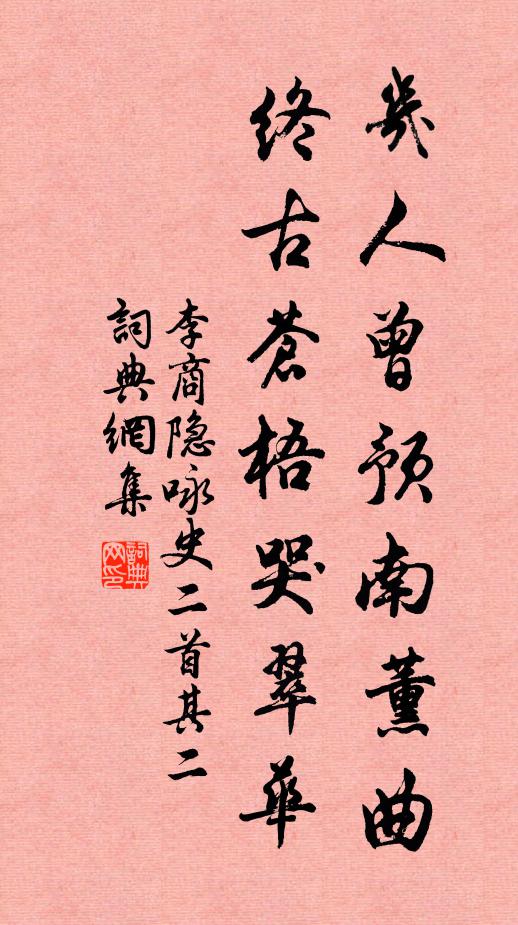 幾人曾預南薰曲
終古蒼梧哭翠華
李商隐咏史二首其二
詞典網集
詞典
网印